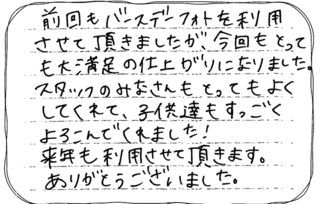 前回もバースデーフォトを利用
させて頂きましたが、今回もとって
も大満足の仕上がりになりました。
スタッフのみなさんもとってもよく
してくれて、子供達もすっごく
よろこんでくれました!
来年も利用させて頂きます。
ありがとうございました。